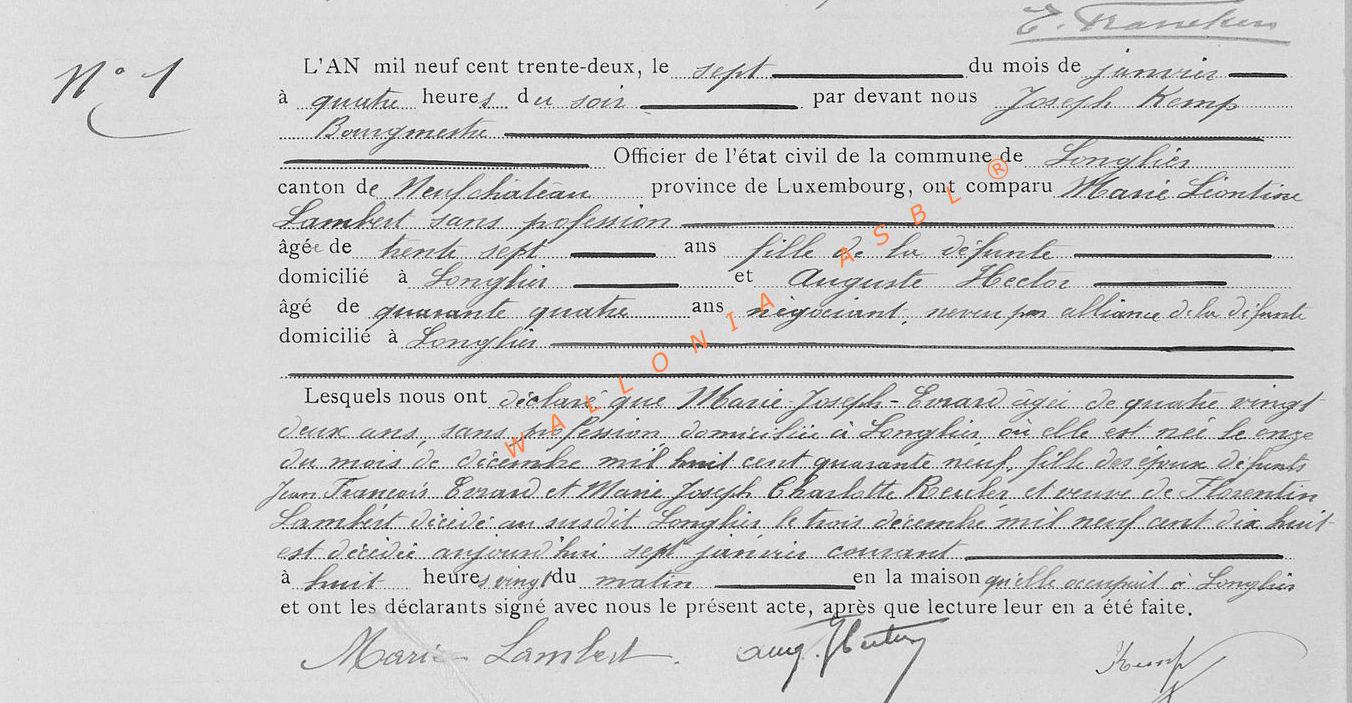 N° 1
L'AN mil neuf cent trente-deux, le sept du mois de janvier
à quatre heures du soir par devant nous Joseph Kemp
Bourgmestre
Officier de l'état civil de la commune de Longlier
canton de Neufchâteau province de Luxembourg, ont comparu Marie Léontine
Lambert sans profession
âgée de trente sept ans fille de la défunte
domicilié à Longlier et Auguste Hector
âgé de quarante quatre ans négociant, neveu par alliance de la défunte
domicilié à Longlier
Lesquels nous ont déclaré que Marie-Joseph-Evrard âgée de quatre vingt
deux ans, sans profession, domiciliée à Longlier où elle est née le onze
du mois de décembre mil huit cent quarante neuf, fille des époux défunts
Jean François Evrard et Marie Joseph Charlotte Reuler et veuve de Florentin
Lambert décédé au susdit Longlier le trois décembre mil neuf cent dix huit
est décédée aujourd'hui sept janvier courant
à huit heures vingt du matin en la maison qu'elle occupait à Longlier
et ont les déclarants signé avec nous le présent acte, après que lecture leur en a été faite.
Marie Lambert. Aug. Kemp
WALLONIA ASBL ®